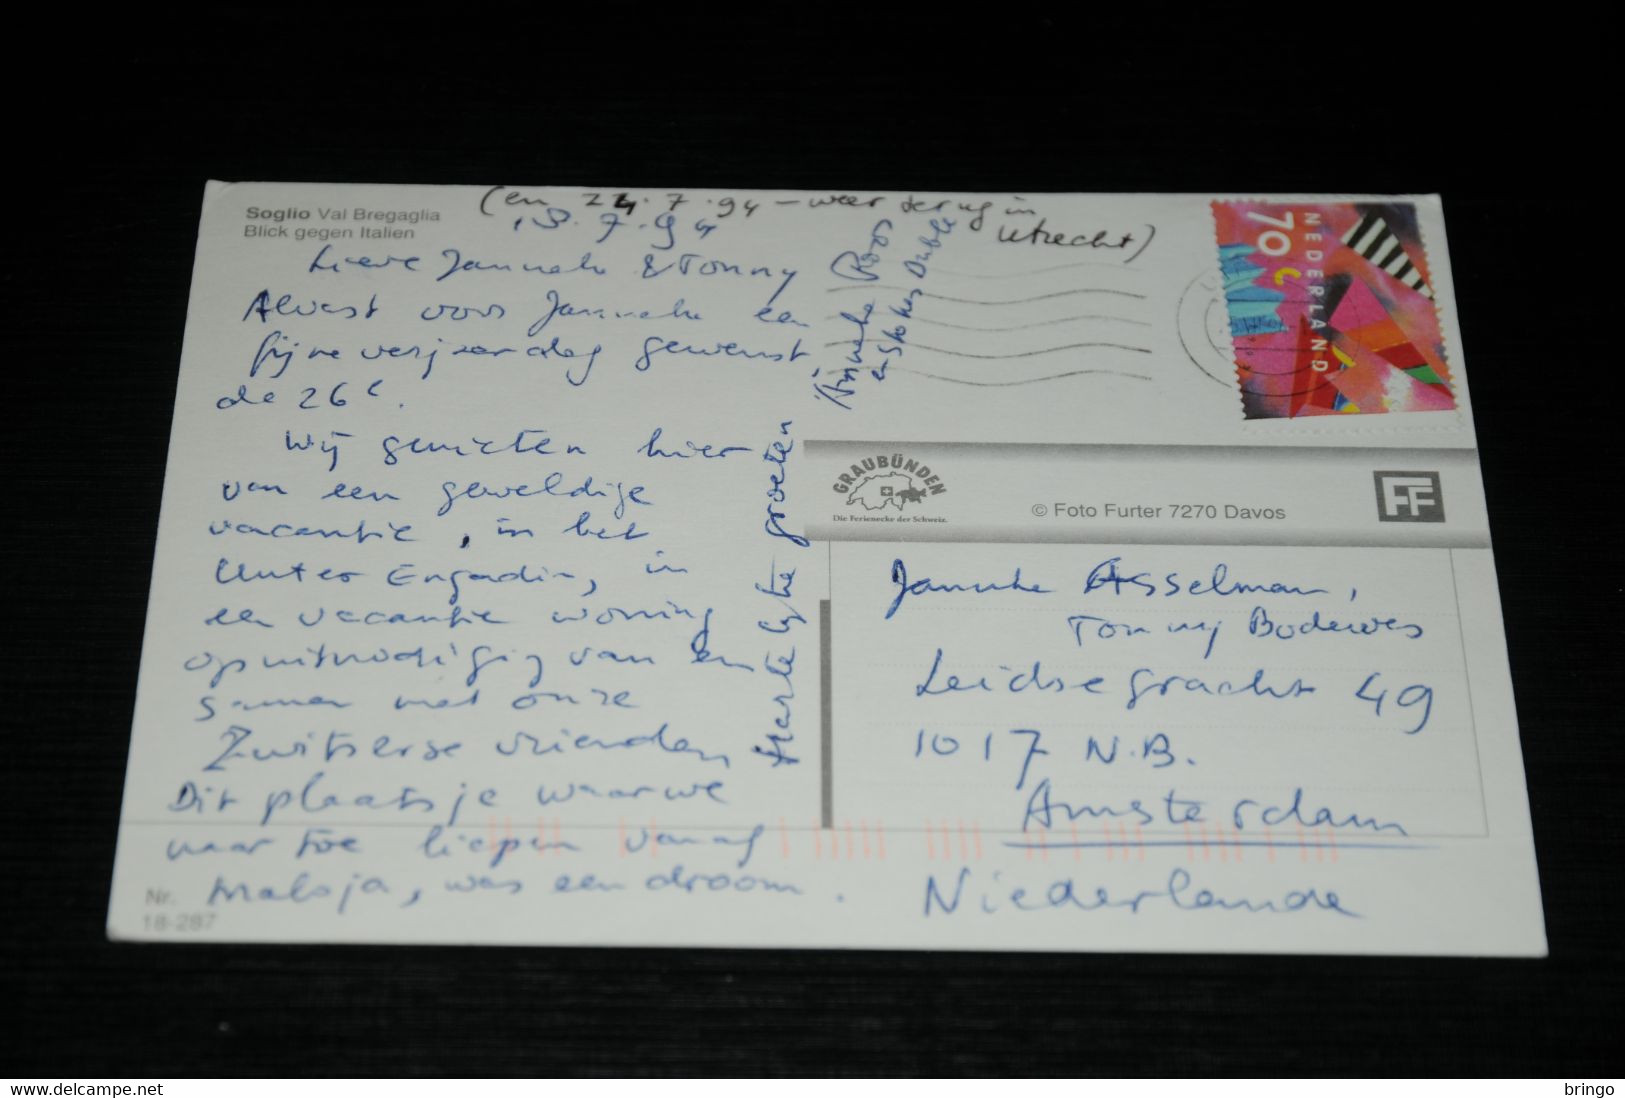 Soglio Val Bregaglia
Blick gegen Italien
(en 24.7.94 - weer terug in
Utrecht)
18.7.94
Lieve Janneke & Tonny
Alvast voor Janneke een
fijne verjaardag gewenst,
de 26e.
Wij genieten hier
van een geweldige
vacantie, in het
Unter Engadin, in
een vacantie woning
op uitnodiging van en
samen met onze
Zwitserse vrienden
Dit plaatsje waar we
naar toe liepen vanaf
Maloja, was een droom.
Hartelijke groeten
Anneke Roos
en
NEDERLAND
70 c
GRAUBÜNDEN
Die Ferienecke der Schweiz.
© Foto Furter 7270 Davos
FF
Janneke Asselman,
Tonny Bodewes
Leidse gracht 49
1017 N.B.
Amsterdam
Niederlande
Nr.
18-287
https://www.delcampe.net
bringo